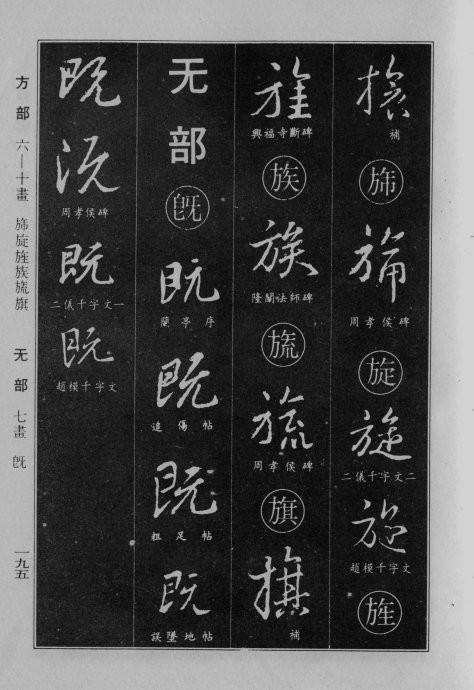 補
旆
旆
周孝侯碑
旋
旋
二儀千字文二
旋
趙模千字文
旌
旌
興福寺斷碑
族
族
隆闡法師碑
旒
旒
周孝侯碑
旗
旗
補
无部
旣
既
蘭亭序
既
追傷帖
既
粗足帖
既
誤墜地帖
既
既
周孝侯碑
既
二儀千字文一
既
趙模千字文
方部 六—十畫 旆旋旌族旒旗 无部 七畫 旣 一九五